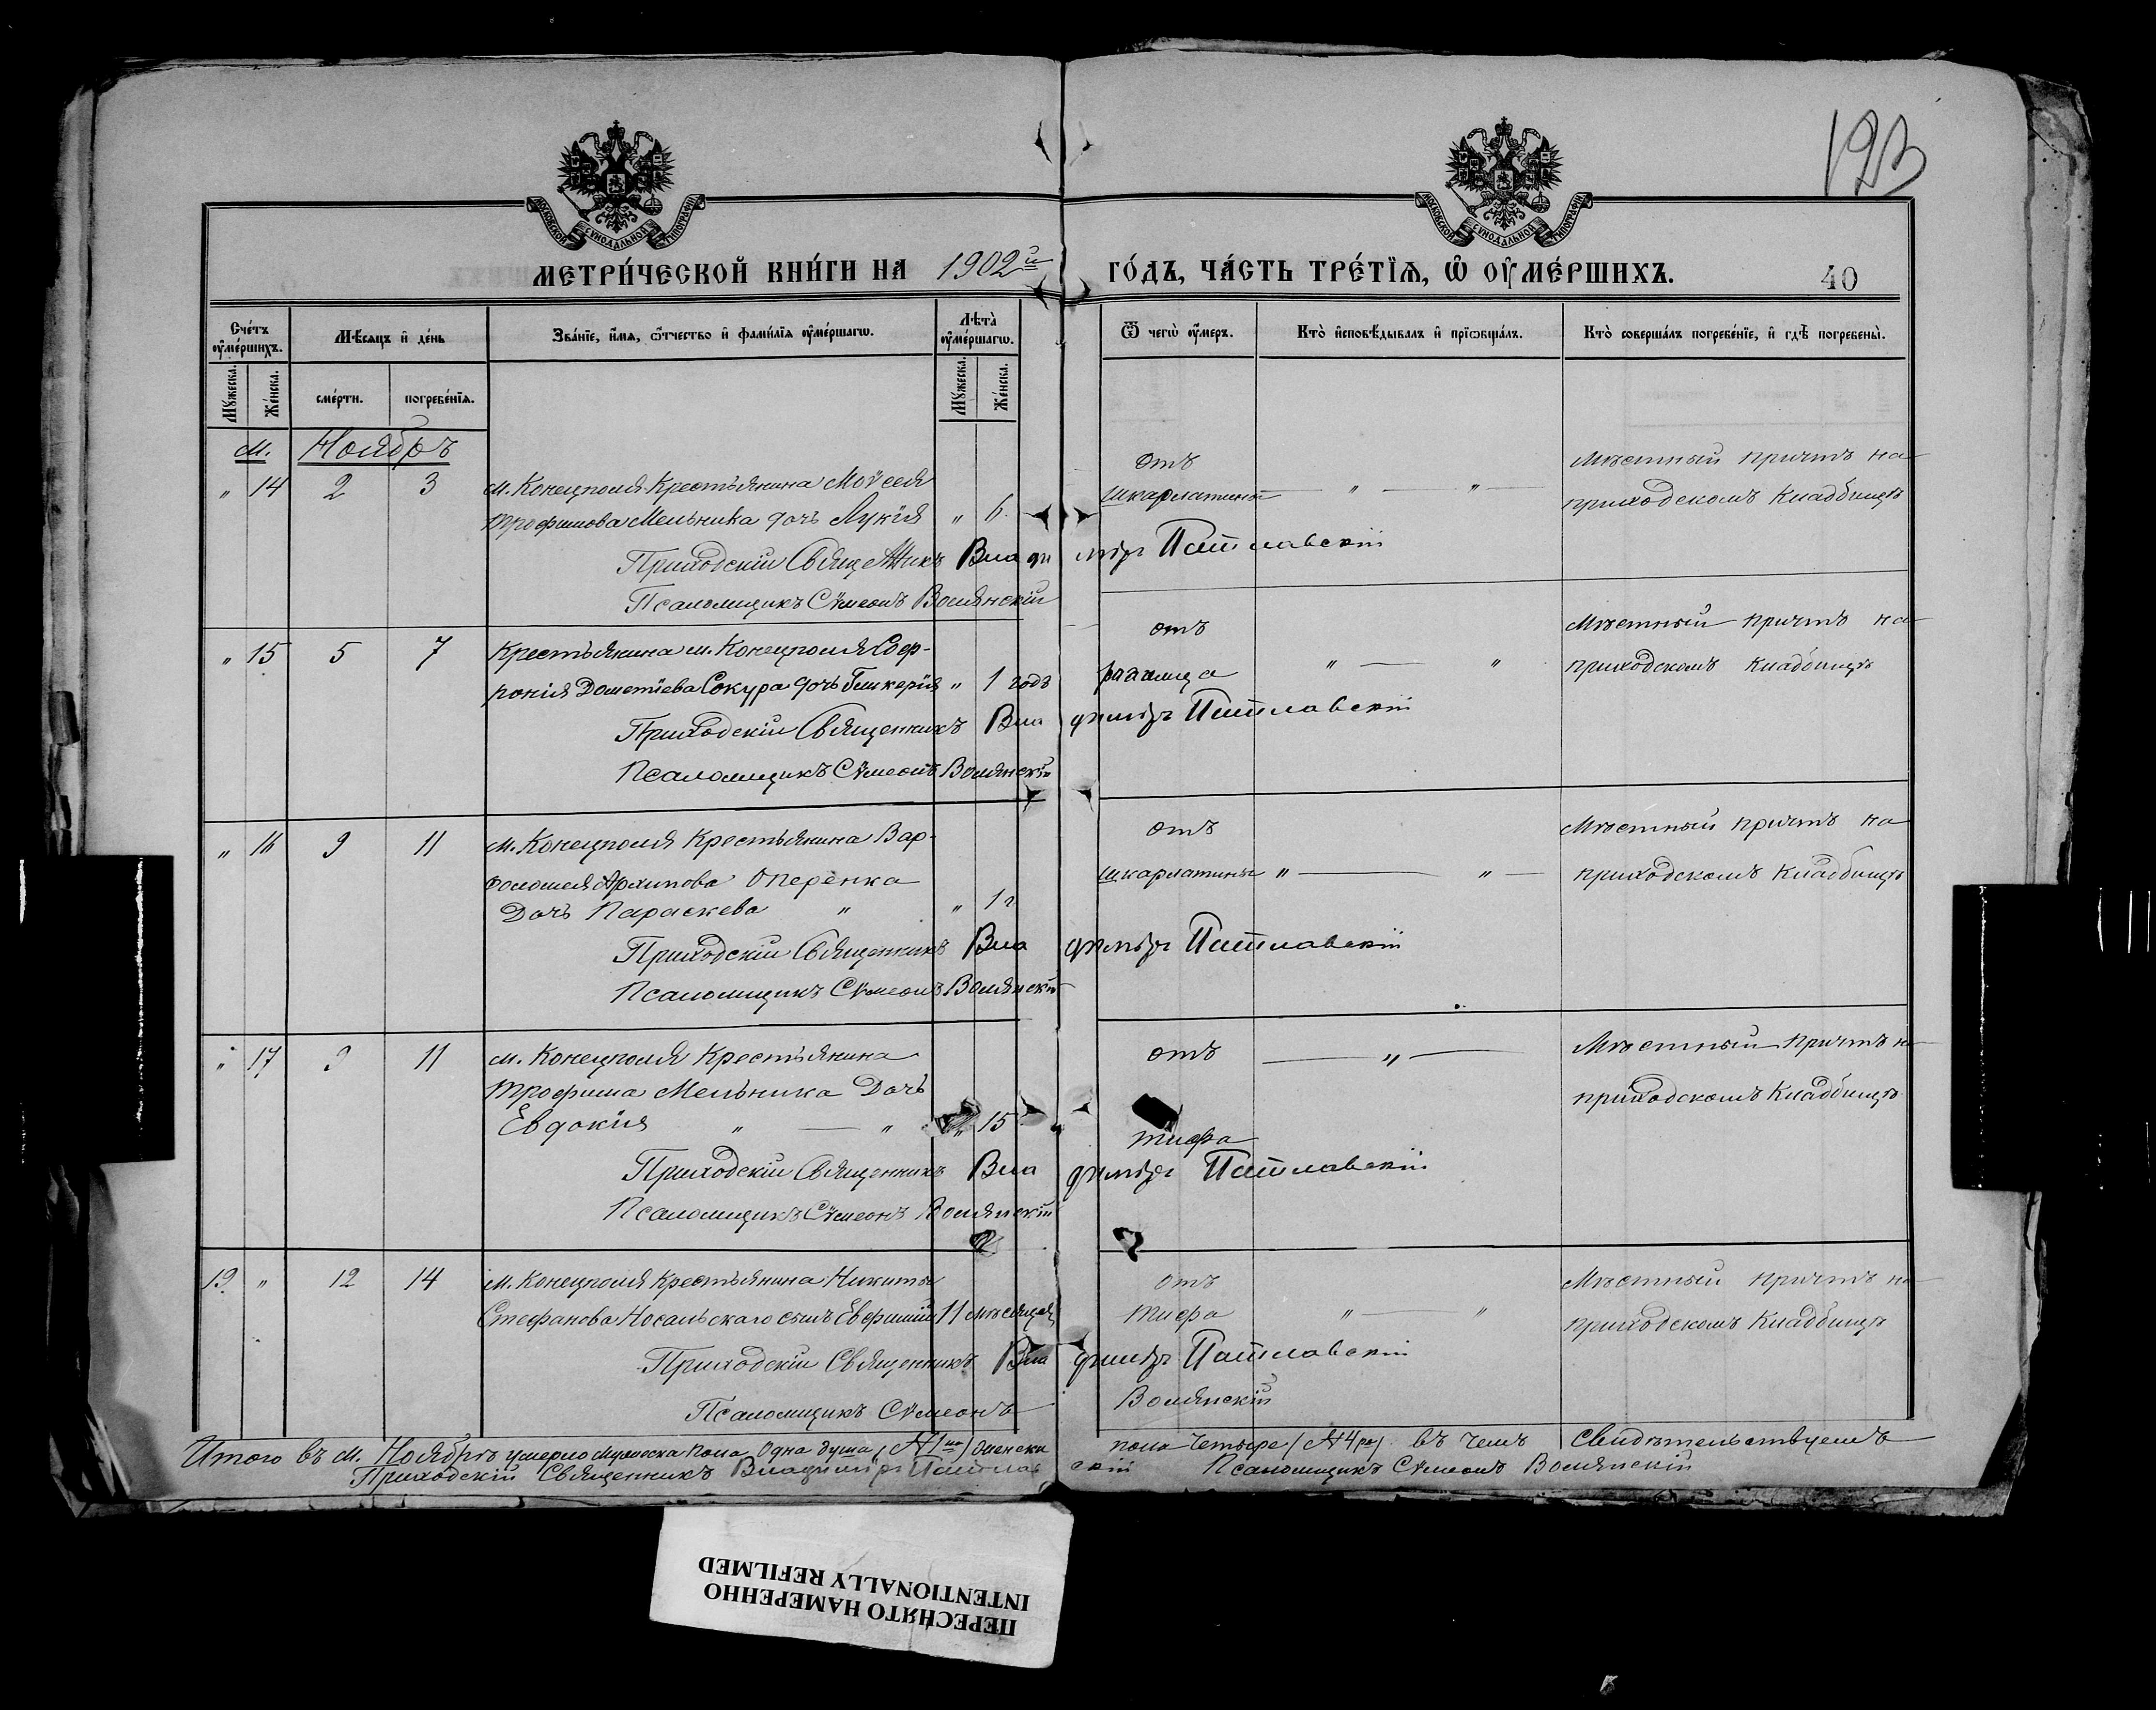 193
МОСКОВСКОЙ СѴНОДАЛЬНОЙ ТИПОГРАФІИ
МОСКОВСКОЙ СѴНОДАЛЬНОЙ ТИПОГРАФІИ
МЕТРИ́ЧЕСКОЙ КНИ́ГИ НА 1902й ГО́ДЪ, ЧА́СТЬ ТРЕ́ТЇѦ, Ѡ ОУ҆МЕ́РШИХЪ.
40
Сче́тъ оу҆ме́ршихъ.
Мѣ́сяцъ и҆ де́нь
Зва́нїе, и҆́мѧ, ѻ҆́тчество и҆ фами́лїѧ оу҆ме́ршагѡ.
Лѣ́та оу҆ме́ршагѡ.
Ѿ чегѡ̀ оу҆́меръ.
Кто̀ и҆сповѣ́дывалъ и҆ прїѡбща́лъ.
Кто̀ соверша́лъ погребе́нїе, и҆ гдѣ̀ погребены̀.
Мꙋ́жеска.
Же́нска.
сме́рти.
погребе́нїѧ.
Мꙋ́жеска.
Же́нска.
м. Ноябрь
" 14 2 3 м. Конецполя Крестьянина Моѵсея
Трофимова Мельника дочь Лукія " 6
отъ
шкарлатины " "
Мѣстный причтъ на
приходскомъ кладбищѣ
Приходскій Священникъ Владиміръ
Псаломщикъ Сѵмеонъ Волянскій
" 15 5 7 Крестьянина м. Конецполя Соф-
ронія Дометіева Сокура дочь Гликерія " 1 годъ
отъ
" "
Мѣстный причтъ на
приходскомъ кладбищѣ
Приходскій Священникъ Владиміръ
Псаломщикъ Сѵмеонъ Волянскій
" 16 9 11 м. Конецполя Крестьянина Вар-
фоломея Архипова Оперенка
Дочь Параскева " " 1 г
отъ
шкарлатины " "
Мѣстный причтъ на
приходскомъ кладбищѣ
Приходскій Священникъ Владиміръ
Псаломщикъ Сѵмеонъ Волянскій
" 17 9 11 м. Конецполя Крестьянина
Трофима Мельника Дочь
Евдокія " " " 15
отъ "
тифа
Мѣстный причтъ на
приходскомъ кладбищѣ
Приходскій Священникъ Владиміръ
Псаломщикъ Сѵмеонъ Волянскій
19 " 12 14 м. Конецполя Крестьянина Никиты
Стефанова Носальскаго сынъ Евфимій 11 мѣсяцей
отъ
тифа " "
Мѣстный причтъ на
приходскомъ кладбищѣ
Приходскій Священникъ Владиміръ
Псаломщикъ Сѵмеонъ Волянскій
Итого въ м. Ноябрѣ умерло мужеска пола одна душа (№ 1на) женска пола четыре (№ 4ре) въ чемъ свидѣтельствуемъ
Приходскій Священникъ Владиміръ Псаломщикъ Сѵмеонъ Волянскій
ПЕРЕСНЯТО НАМЕРЕННО
INTENTIONALLY REFILMED